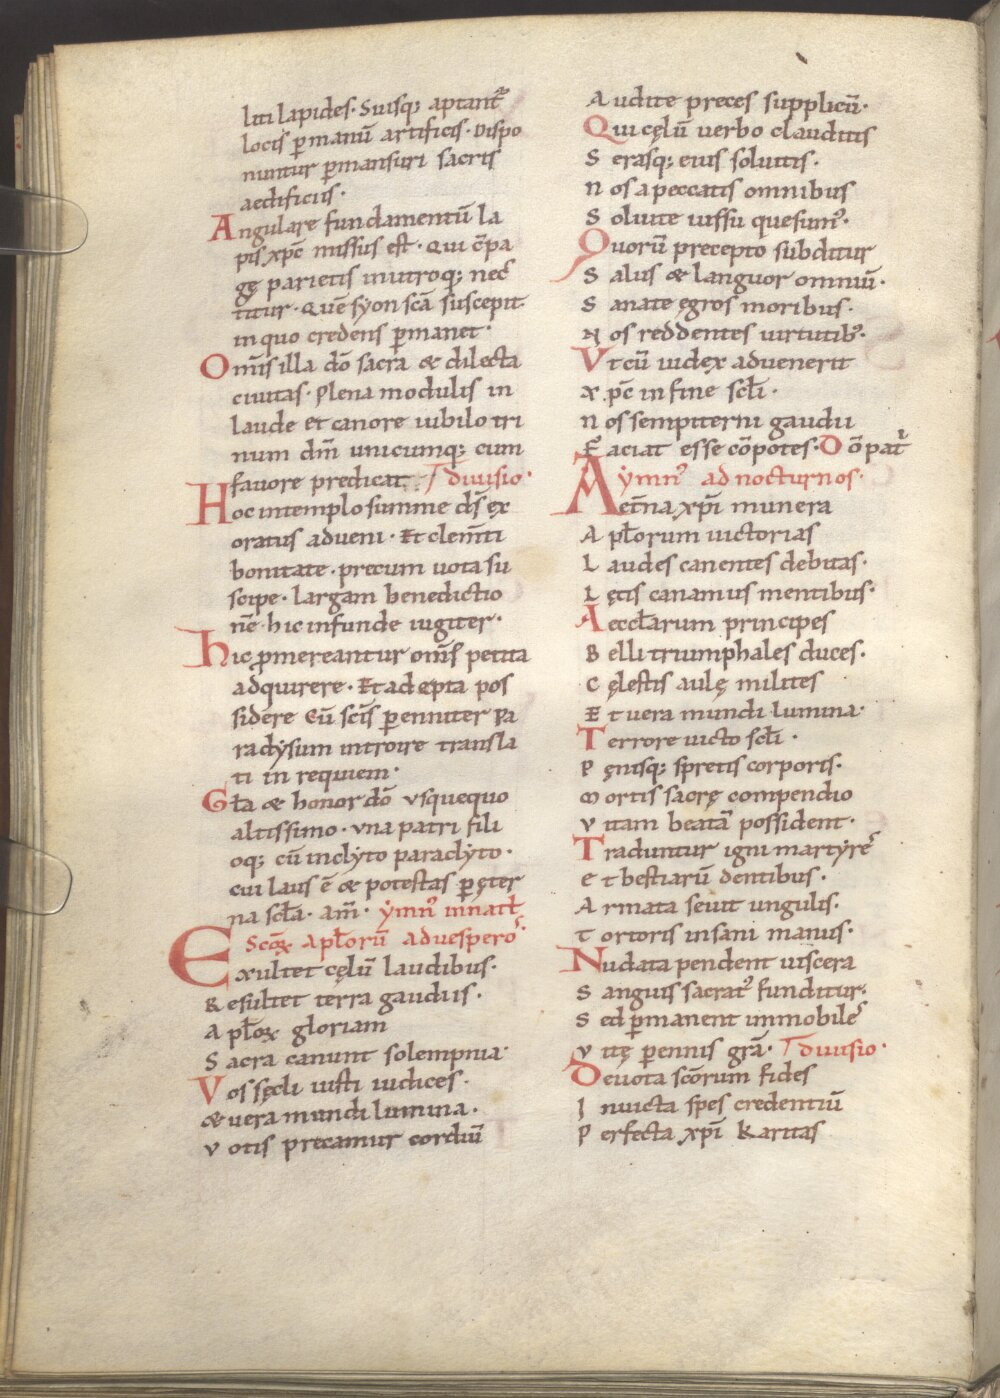 liti lapides· Suisq; aptant᷑
locis ꝑ manū artificis· Dispo
nuntur ꝑmansuri sacris
aedificiis·
Angulare fundamentū la
pis xp̄c missus est· Qui cō̄pa
gę parietis in utroq; nec
titur· Quē syon scā suscepit
in quo credens ꝑmanet·
Om̄is illa dō sacra & dilecta
ciuitas· Plena modulis in
laude et canore iubilo tri
num dm̄ unicumq; cum
fauore predicat· diuisio·
Hoc in templo summe ds̄ ex
oratus adueni· Et clem̄ti
bonitate· precum uota su
scipe· largam benedictio
nē hic infunde iugiter·
hic ꝓmereantur om̄s petita
adquirere· Et adepta pos
sidere Cū scīs ꝑenniter Pa
radẏsum introire transla
ti in requiem·
Gła & honor dō vsquequo
altissimo· vna patri fili
oq; cū inclẏto paraclẏto·
cui laus ē & potestas ꝑ ęter
na scła· am̄· ẏmn᾿ in nat̄
Scōꝝ Apłorū ad vesperos᾿
Exultet cęlū laudibus·
Resultet terra gaudiis·
Apłoꝝ gloriam
Sacra canunt solempnia·
Vos sęcli iusti iudices·
& uera mundi lumina·
Votis precamur cordiū
Audite preces supplicū·
Qui cęlū uerbo clauditis
Serasq; eius soluitis·
Nos a peccatis omnibus
Soluite iussu quesum᾿·
Quorū precepto subditur
Salus & languor omniū·
Sanate ęgros moribus·
Nos reddentes uirtutib᾿·
Vt cū iudex aduenerit
xp̄c in fine scłi·
Nos sempiterni gaudii
Faciat esse cōpotes· Dō pat͛
ẏmn᾿ ad nocturnos·
Aet̄na xp̄i munera
Apłorum uictorias
Laudes canentes debitas·
Lętis canamus mentibus·
Aeccłarum principes
Belli triumphales duces·
Cęlestis aulę milites
Et uera mundi lumina·
Terrore uicto scłi·
Pęnisq; spretis corporis·
Mortis sacrę compendio
Vitam beatā possident·
Traduntur igni martẏres᾿
et bestiarū dentibus·
Armata seuit ungulis·
Tortoris insani manus·
Nudata pendent uiscera
Sanguis sacrat᾿ funditur·
Sed ꝑmanent immobiles᾿
Vitę ꝑennis grā· diuisio·
Deuota scōrum fides
Inuicta spes credentiū
Perfecta xp̄i karitas